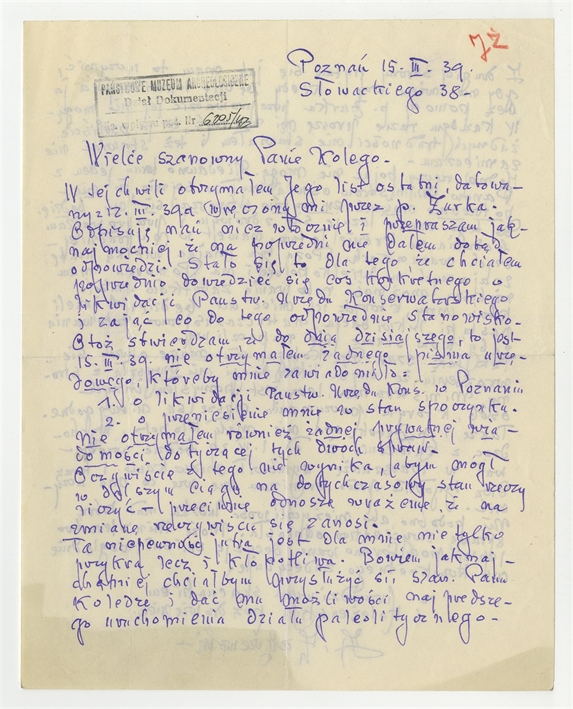 JŻ
Poznań 15. III. 39.
Słowackiego 38 –
PAŃSTWOWE MUZEUM ARCHEOLOGICZNE
Dział Dokumentacji
pod. Nr
Wielce szanowny Panie Kolego –
W tej chwili otrzymałem Jego list ostatni, datowa–
ny 12. III. 39 a wręczony mi przez p. Żurka.
Odpisuję nań niezwłocznie i przepraszam jak–
najmocniej, że na poprzedni nie dałem dotąd
odpowiedzi. Stało się to dla tego, że chciałem
poprzednio dowiedzieć się coś konkretnego o
likwidacji Państw. Urzędu Konserwatorskiego
i zająć co do tego odpowiednie stanowisko –
Otóż stwierdzam że do dnia dzisiajszego, to jest
15. III. 39. nie otrzymałem żadnego pisma urzę–
dowego, któreby mnie zawiadomiło:
1. o likwidacji Państw. Urzędu Kons. w Poznaniu
2. przeniesienie mnie w stan spoczynku.
nie otrzymałem również żadnej prywatnej wia–
domości dotyczącej tych dwóch spraw –
Oczywiście z tego nie wynika, abym mógł
w dalszym ciągu na dotychczasowy stan rzeczy
liczyć – przeciwnie odnoszę wrażenie, że na
zmianę rzeczywiście się zanosi.
Ta niepewność jutra jest dla mnie nie tylko
przykra lecz i kłopotliwa. Bowiem jaknaj–
chętniej chciałbym przysłużyć się szan. Panu
Koledze i dać mu możliwości najprędsze–
go uruchomienia działu paleolitycznego –